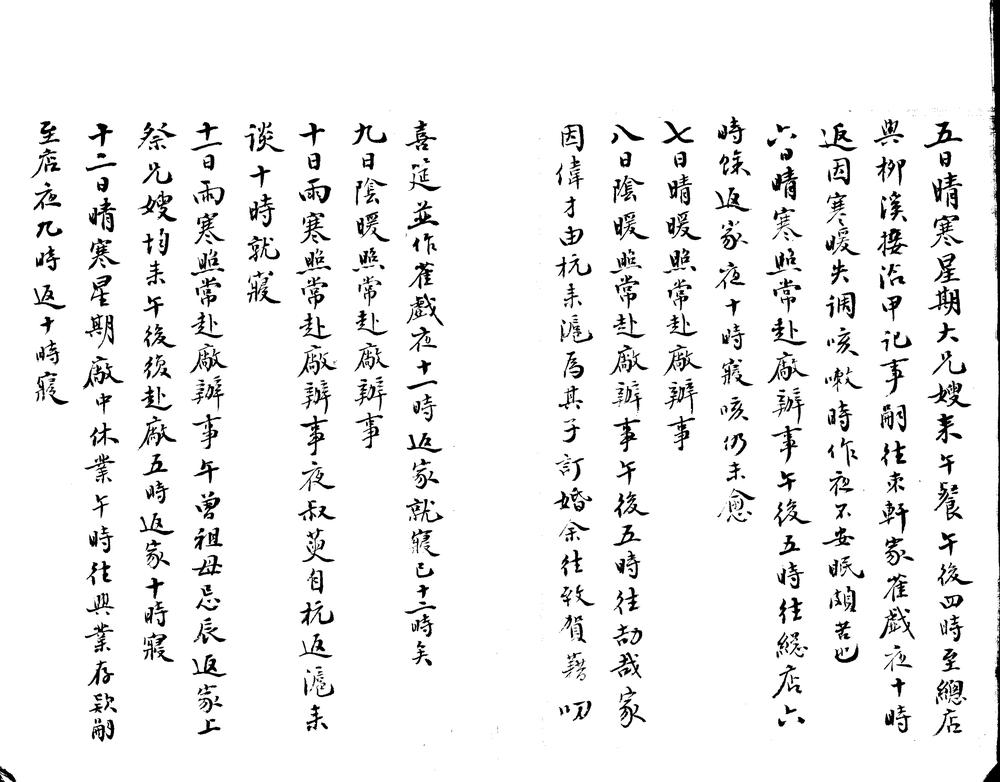 五日晴寒星期大兄嫂來午餐午後四時至總店
與柳溪接洽甲記事嗣往束軒家雀戲夜十時
返因寒暖失调咳嗽時作夜不安眠頗苦也
六日晴寒照常赴廠辦事午後五時往總店六
時馀返家夜十時寢咳仍未愈
七日晴暖照常赴廠辦事
八日陰暖照常赴廠辦事午後五時往劼哉家
因偉才由杭来滬爲其子訂婚余往致賀藉叨
喜筵並作雀戲夜十一時返家就寢已十二時矣
九日陰暖照常赴廠辦事
十日雨寒照常赴廠辦事夜叔萸自杭返滬来
談十時就寢
十一日雨寒照常赴廠辦事午曾祖母忌辰返家上
祭兄嫂均来午後復赴廠五時返家十時寢
十二日晴寒星期廠中休業午時往興業存款嗣
至店夜九時返十時寢